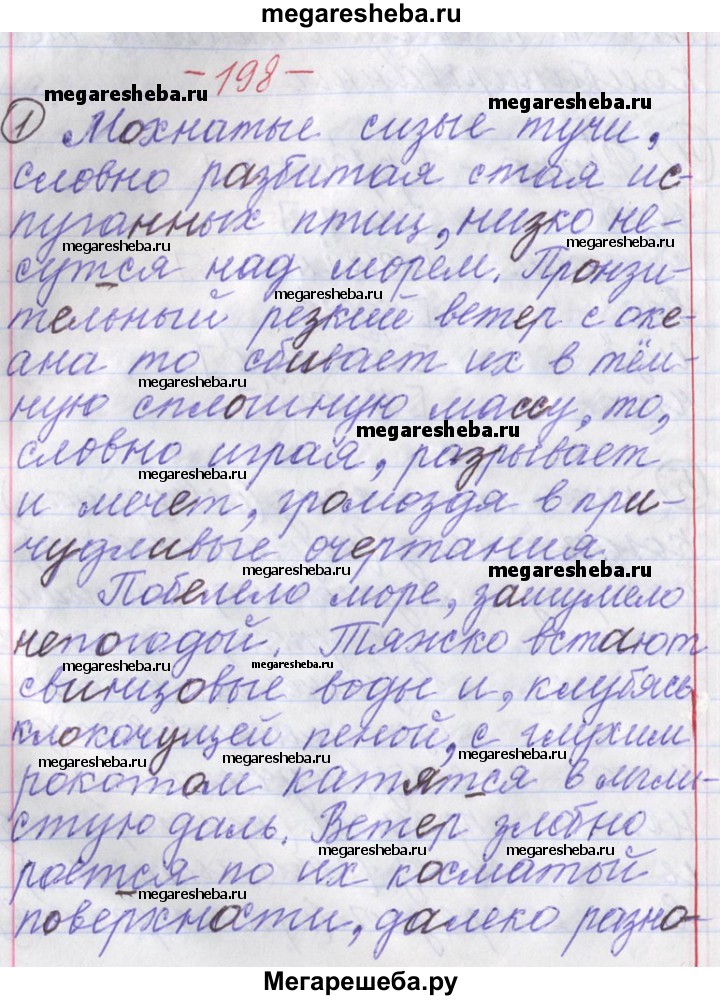 megaresheba.ru
- 198 -
megaresheba.ru
megaresheba.ru
① Мохнатые сизые тучи,
словно разбитая стая ис-
пуганных птиц, низко не-
megaresheba.ru
megaresheba.ru
сутся над морем. Пронзи-
megaresheba.ru
тельный резкий ветер с оке-
ана то сбивает их в тём-
megaresheba.ru
ную сплошную массу, то,
megaresheba.ru
словно играя, разрывает
megaresheba.ru
и мечет, громоздя в при-
чудливые очертания.
megaresheba.ru
megaresheba.ru
Побелело море, зашумело
непогодой. Тяжело встают
megaresheba.ru
megaresheba.ru
свинцовые воды и, клубясь
клокочущей пеной, с глухим
megaresheba.ru
megaresheba.ru
рокотом катятся в мгли-
стую даль. Ветер злобно
megaresheba.ru
megaresheba.ru
роется по их косматой
megaresheba.ru
поверхности, далеко разно-
Мегарешеба.ру